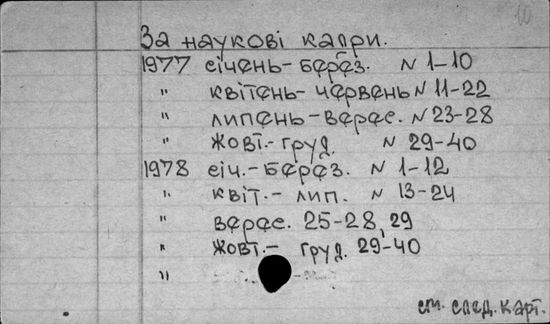 За наукові кадри.
1977 січень-берез. N 1-10
" квітень-червень N 11-22
" липень-верес. N 23-28
" жовт.-груд. N 29-40
1978 січ.-берез. N 1-12
" квіт.-лип. N 13-24
" верес. 25-28, 29
" жовт.- груд. 29-40
"
см. след. карт.